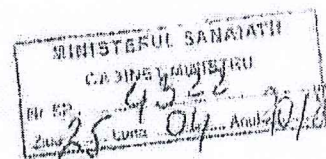 MINISTERUL SANATATII
CABINET MINISTRU
Nr. 4322
Ziua 25 Luna 04 Anul